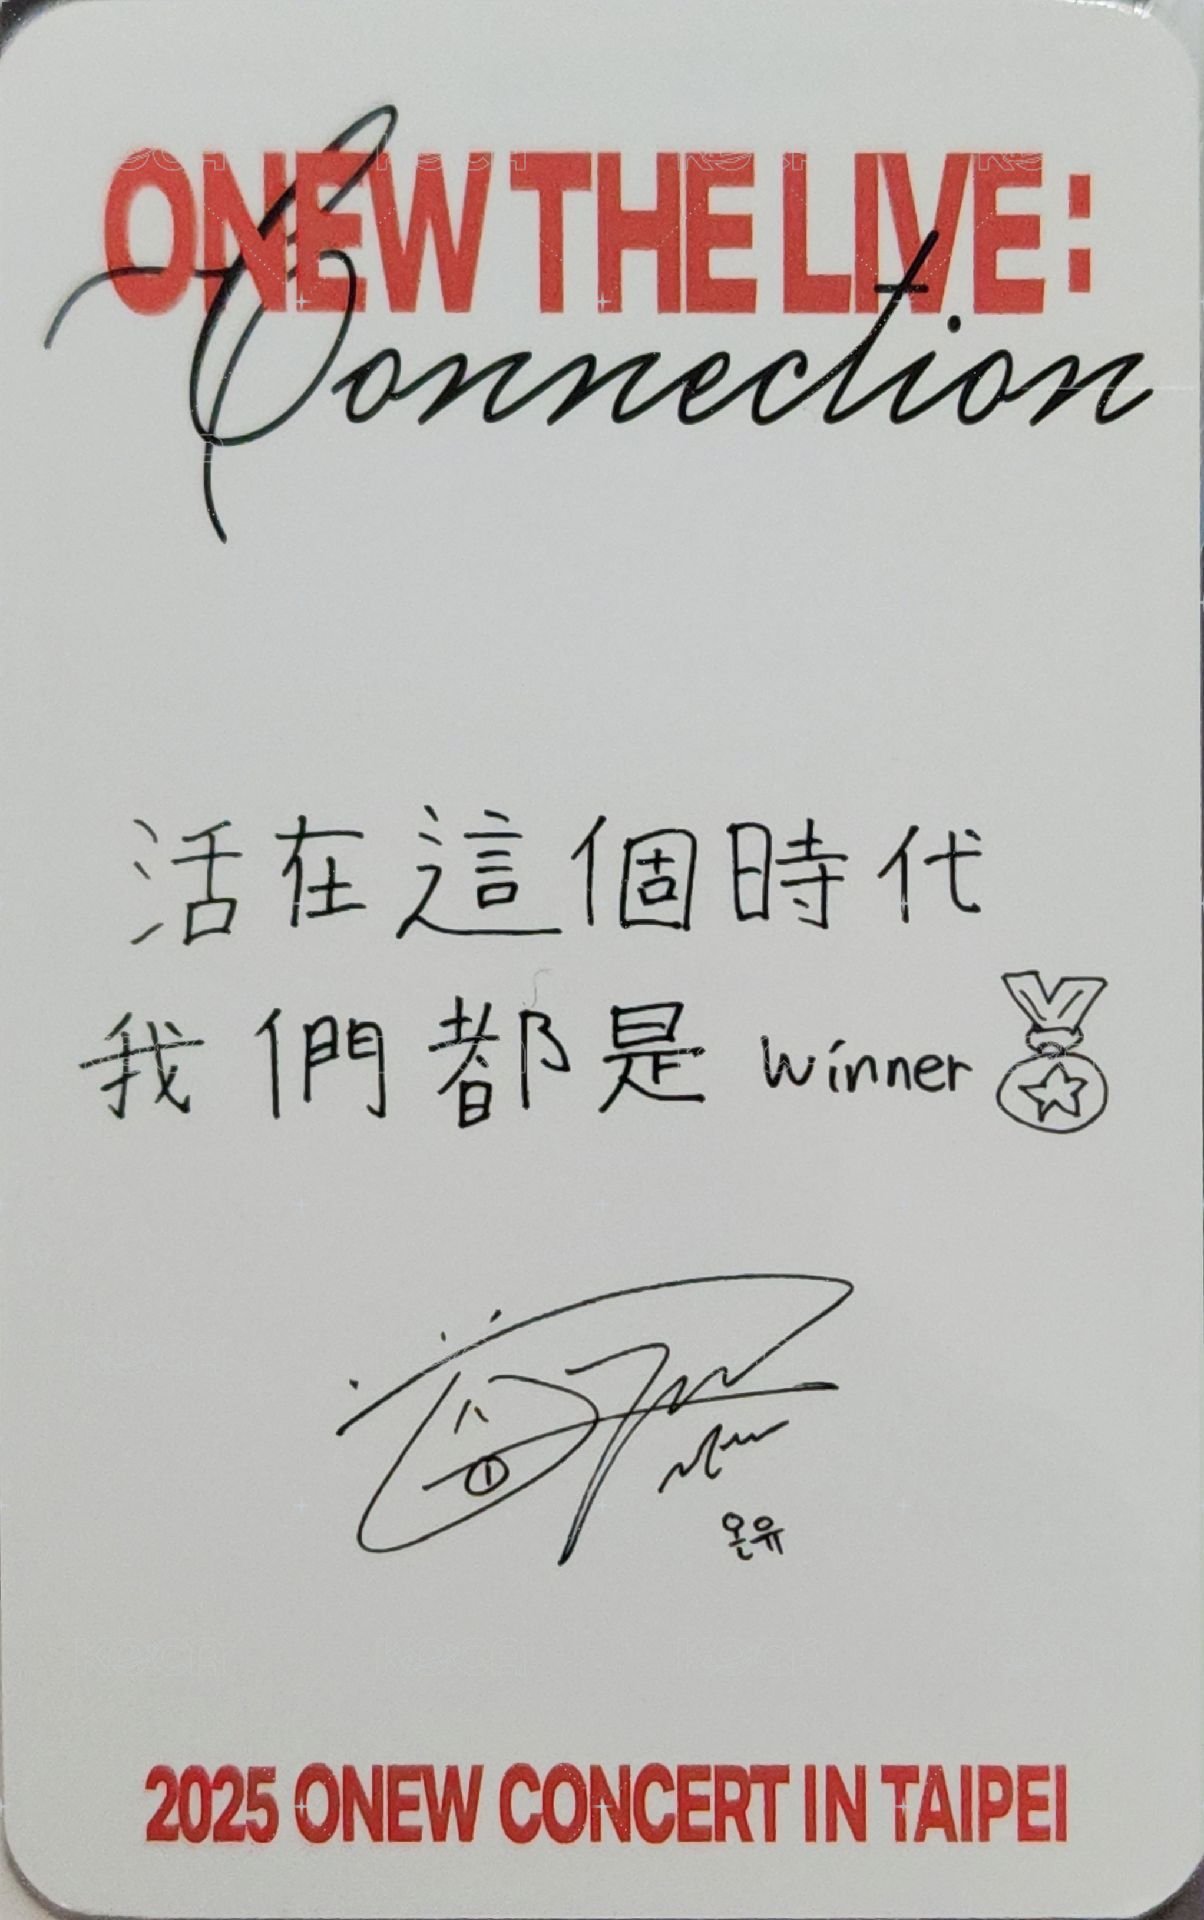 ONEW THE LIVE :
Connection
活在這個時代
我們都是 winner
온유
2025 ONEW CONCERT IN TAIPEI